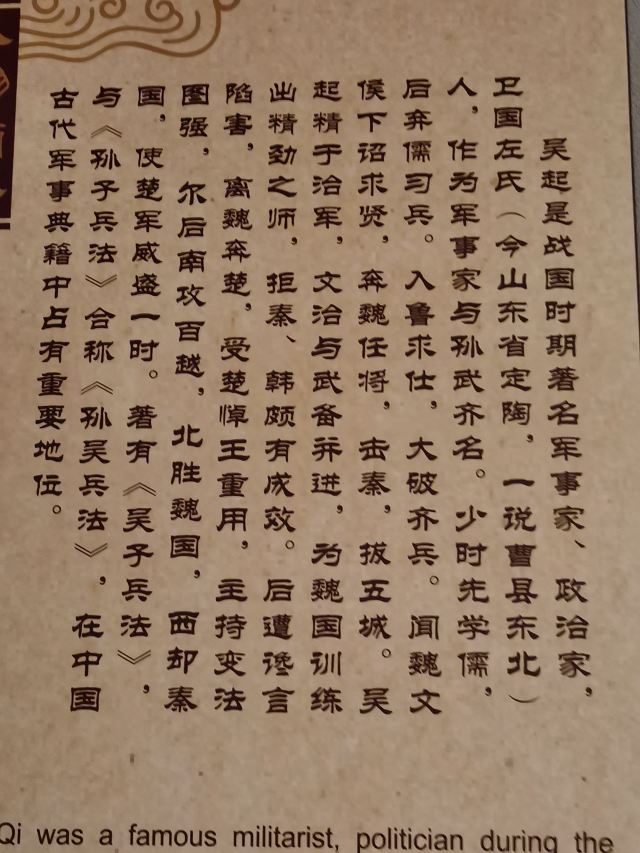 吴起是战国时期著名军事家、政治家，
卫国左氏（今山东省定陶，一说曹县东北）
人，作为军事家与孙武齐名。少时先学儒，
后弃儒习兵。入鲁求仕，大破齐兵。闻魏文
侯下诏求贤，奔魏任将，击秦，拔五城。吴
起精于治军，文治与武备并进，为魏国训练
出精劲之师，拒秦、韩颇有成效。后遭谗言
陷害，离魏奔楚，受楚悼王重用，主持变法
图强，尔后南攻百越，北胜魏国，西却秦
国，使楚军威盛一时。著有《吴子兵法》，
与《孙子兵法》合称《孙吴兵法》，在中国
古代军事典籍中占有重要地位。
Qi was a famous militarist, politician during the